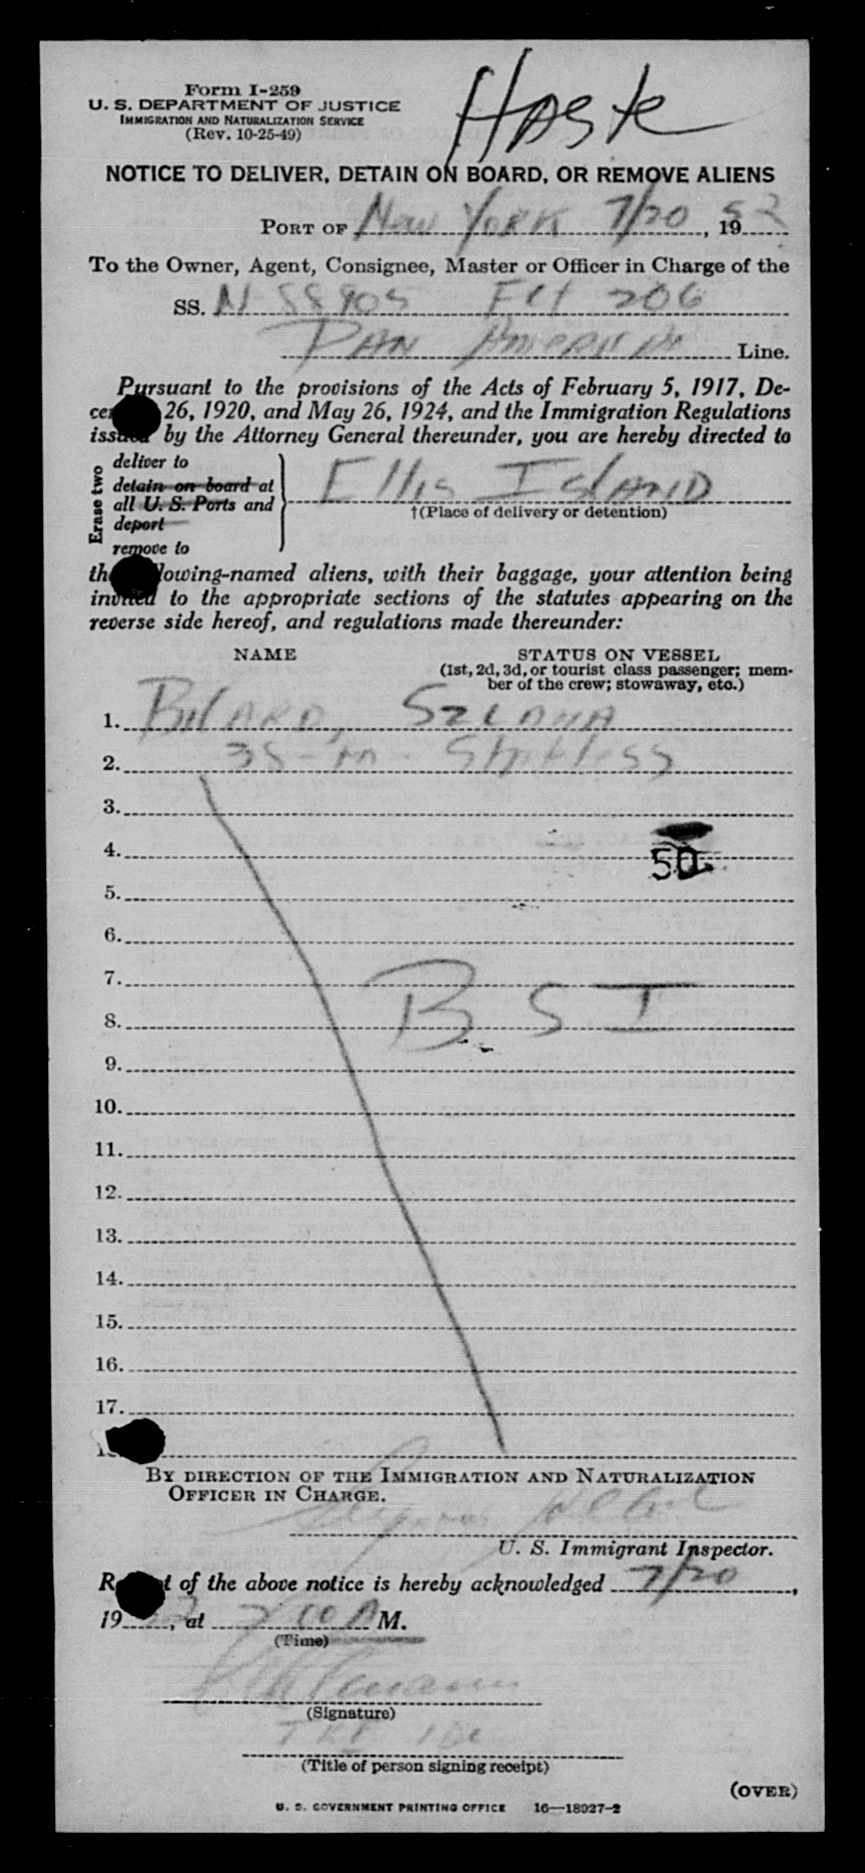 Form I-259
U. S. DEPARTMENT OF JUSTICE
IMMIGRATION AND NATURALIZATION SERVICE
(Rev. 10-25-49)
NOTICE TO DELIVER, DETAIN ON BOARD, OR REMOVE ALIENS
PORT OF New York 7/20, 1952
To the Owner, Agent, Consignee, Master or Officer in Charge of the
SS. N 88905 206
Pan American Line.
Pursuant to the provisions of the Acts of February 5, 1917, De-
26, 1920, and May 26, 1924, and the Immigration Regulations
issued by the Attorney General thereunder, you are hereby directed to
Erase two
deliver to
detain on board at
all U. S. Ports and
deport
remove to
Ellis Island
†(Place of delivery or detention)
following-named aliens, with their baggage, your attention being
invited to the appropriate sections of the statutes appearing on the
reverse side hereof, and regulations made thereunder:
NAME STATUS ON VESSEL
(1st, 2d, 3d, or tourist class passenger; mem-
ber of the crew; stowaway, etc.)
1.
2. 35-m- Stateless
3.
4. 50
5.
6.
7.
8. B S I
9.
10.
11.
12.
13.
14.
15.
16.
17.
BY DIRECTION OF THE IMMIGRATION AND NATURALIZATION
OFFICER IN CHARGE.
U. S. Immigrant Inspector.
Receipt of the above notice is hereby acknowledged 7/20,
19 , at 10 A M.
(Time)
(Signature)
(Title of person signing receipt)
(OVER)
U. S. GOVERNMENT PRINTING OFFICE 16—18027-2